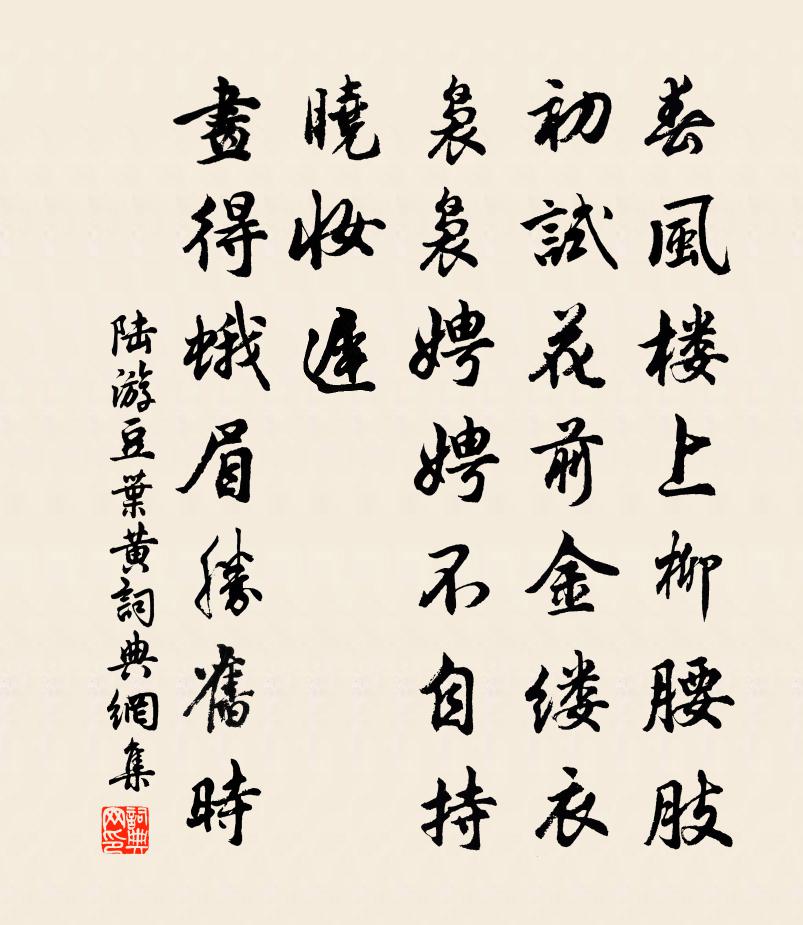 春風楼上柳腰肢
初試花前金缕衣
袅袅娉娉不自持
曉妆遲
畫得蛾眉勝舊時
陆游豆葉黄詞典網集
詞典网印